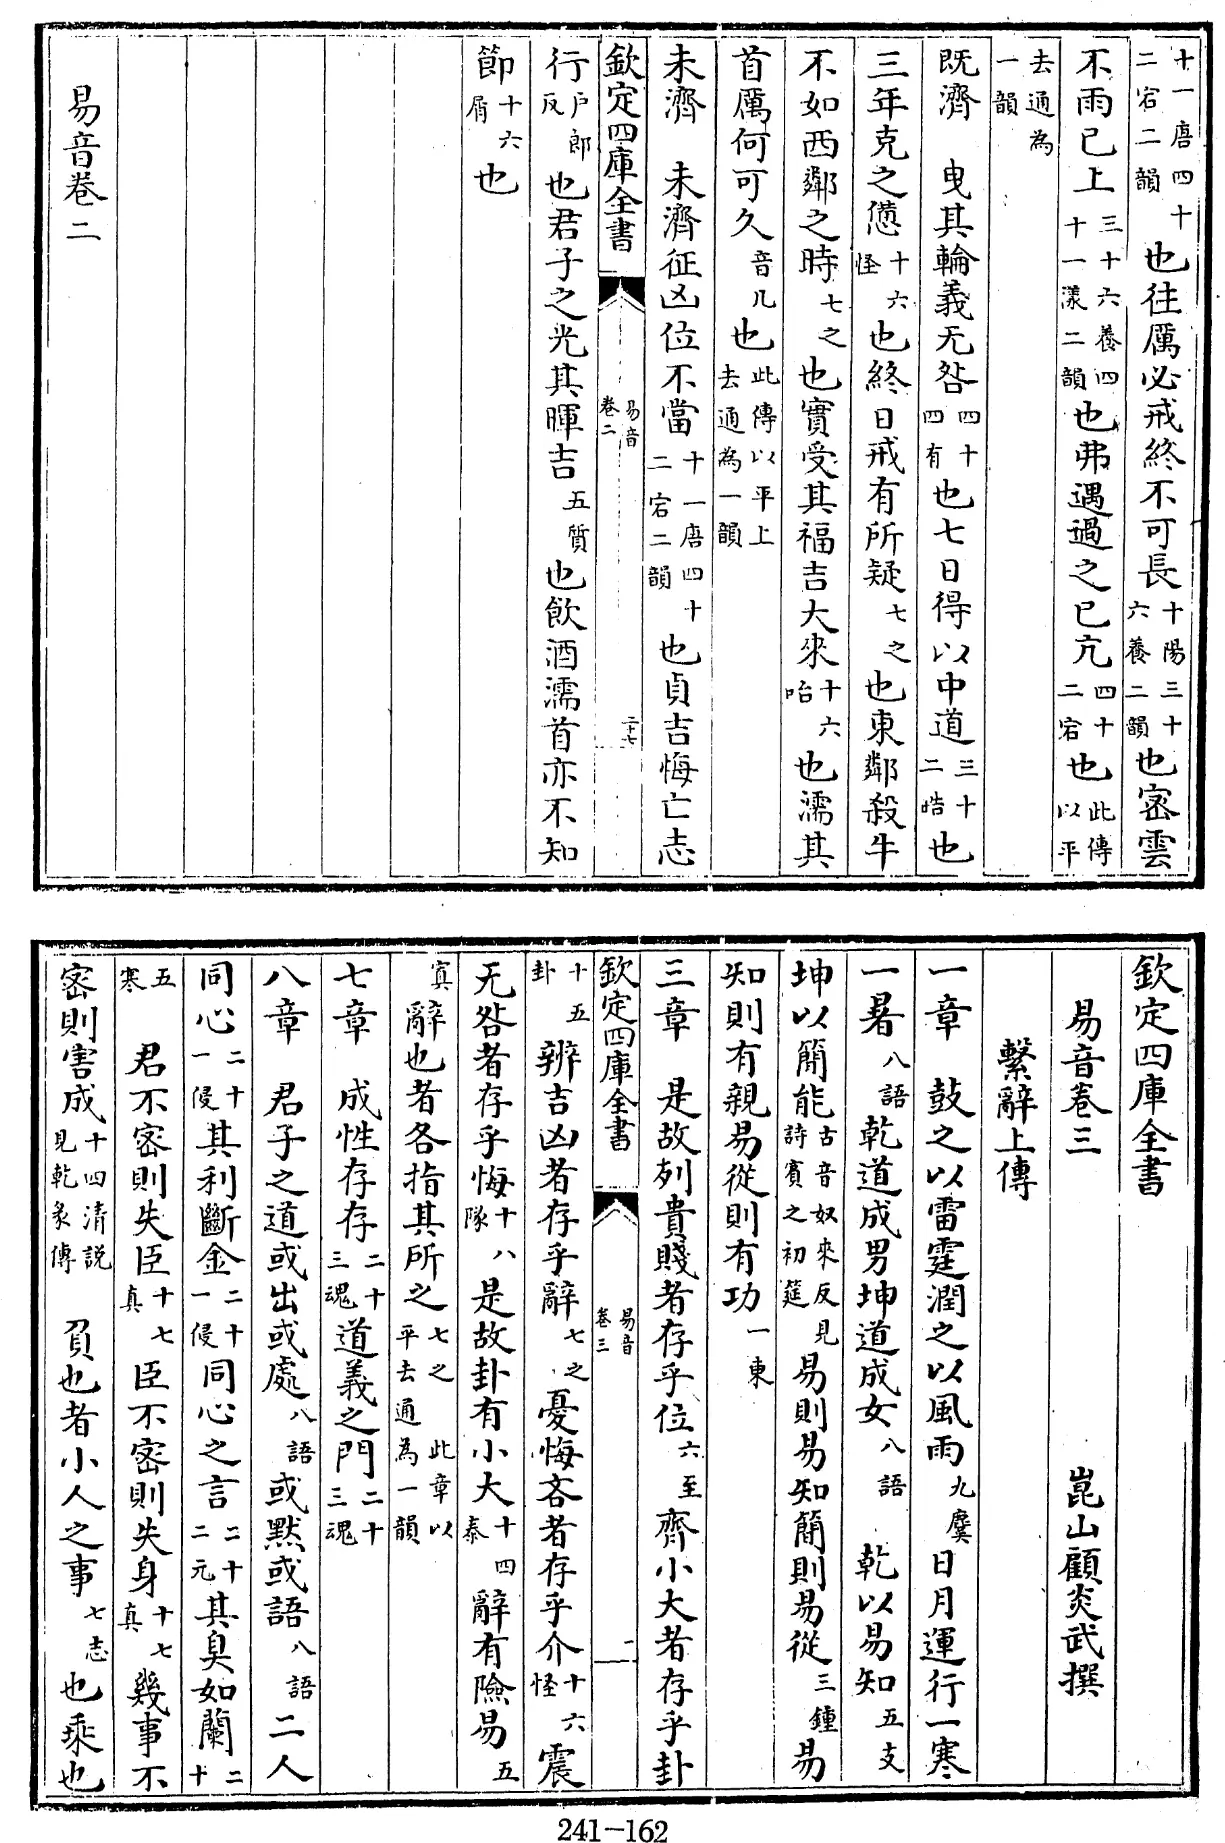 十一唐四十二宕二韻也往厲必戒終不可長十陽三十六養二韻也密雲
不雨已上三十六養四十一漾二韻也弗遇過之已亢四十二宕也此傳以平
去通為一韻
既濟　曳其輪義无咎四十四有也七日得以中道三十二皓也
三年克之憊十六怪也終日戒有所疑七之也東鄰殺牛
不如西鄰之時七之也實受其福吉大來十六咍也濡其
首厲何可久音几也此傳以平上去通為一韻
未濟　未濟征凶位不當十一唐四十二宕二韻也貞吉悔亡志
欽定四庫全書　易音卷二　二十七
行户郎反也君子之光其暉吉五質也飲酒濡首亦不知
節十六屑也
易音卷二
欽定四庫全書
易音卷三　崑山顧炎武撰
繫辭上傳
一章　鼓之以雷霆潤之以風雨九麌日月運行一寒
一暑八語乾道成男坤道成女八語　乾以易知五支
坤以簡能古音奴來反見詩賓之初筵易則易知簡則易從三鍾易
知則有親易從則有功一東
三章　是故列貴賤者存乎位六至　齊小大者存乎卦
欽定四庫全書　易音卷三　一
十五卦　辨吉凶者存乎辭七之憂悔吝者存乎介十六怪震
无咎者存乎悔十八隊是故卦有小大十四泰辭有險易五
寘辭也者各指其所之七之　此章以平去通為一韻
七章　成性存存二十三魂道義之門二十三魂
八章　君子之道或出或處八語或默或語八語二人
同心二十一侵其利斷金二十一侵同心之言二十二元其臭如蘭二十
五寒　君不密則失臣十七真臣不密則失身十七真幾事不
密則害成十四清説見乾彖傳　負也者小人之事七志也乘也
241-162